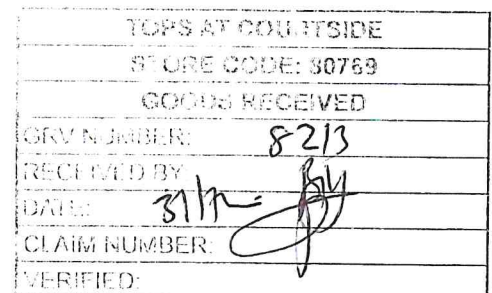 TOPS AT COURTSIDE
STORE CODE: 80769
GOODS RECEIVED
GRV NUMBER: 8213
RECEIVED BY
DATE: 31/12
CLAIM NUMBER:
VERIFIED: